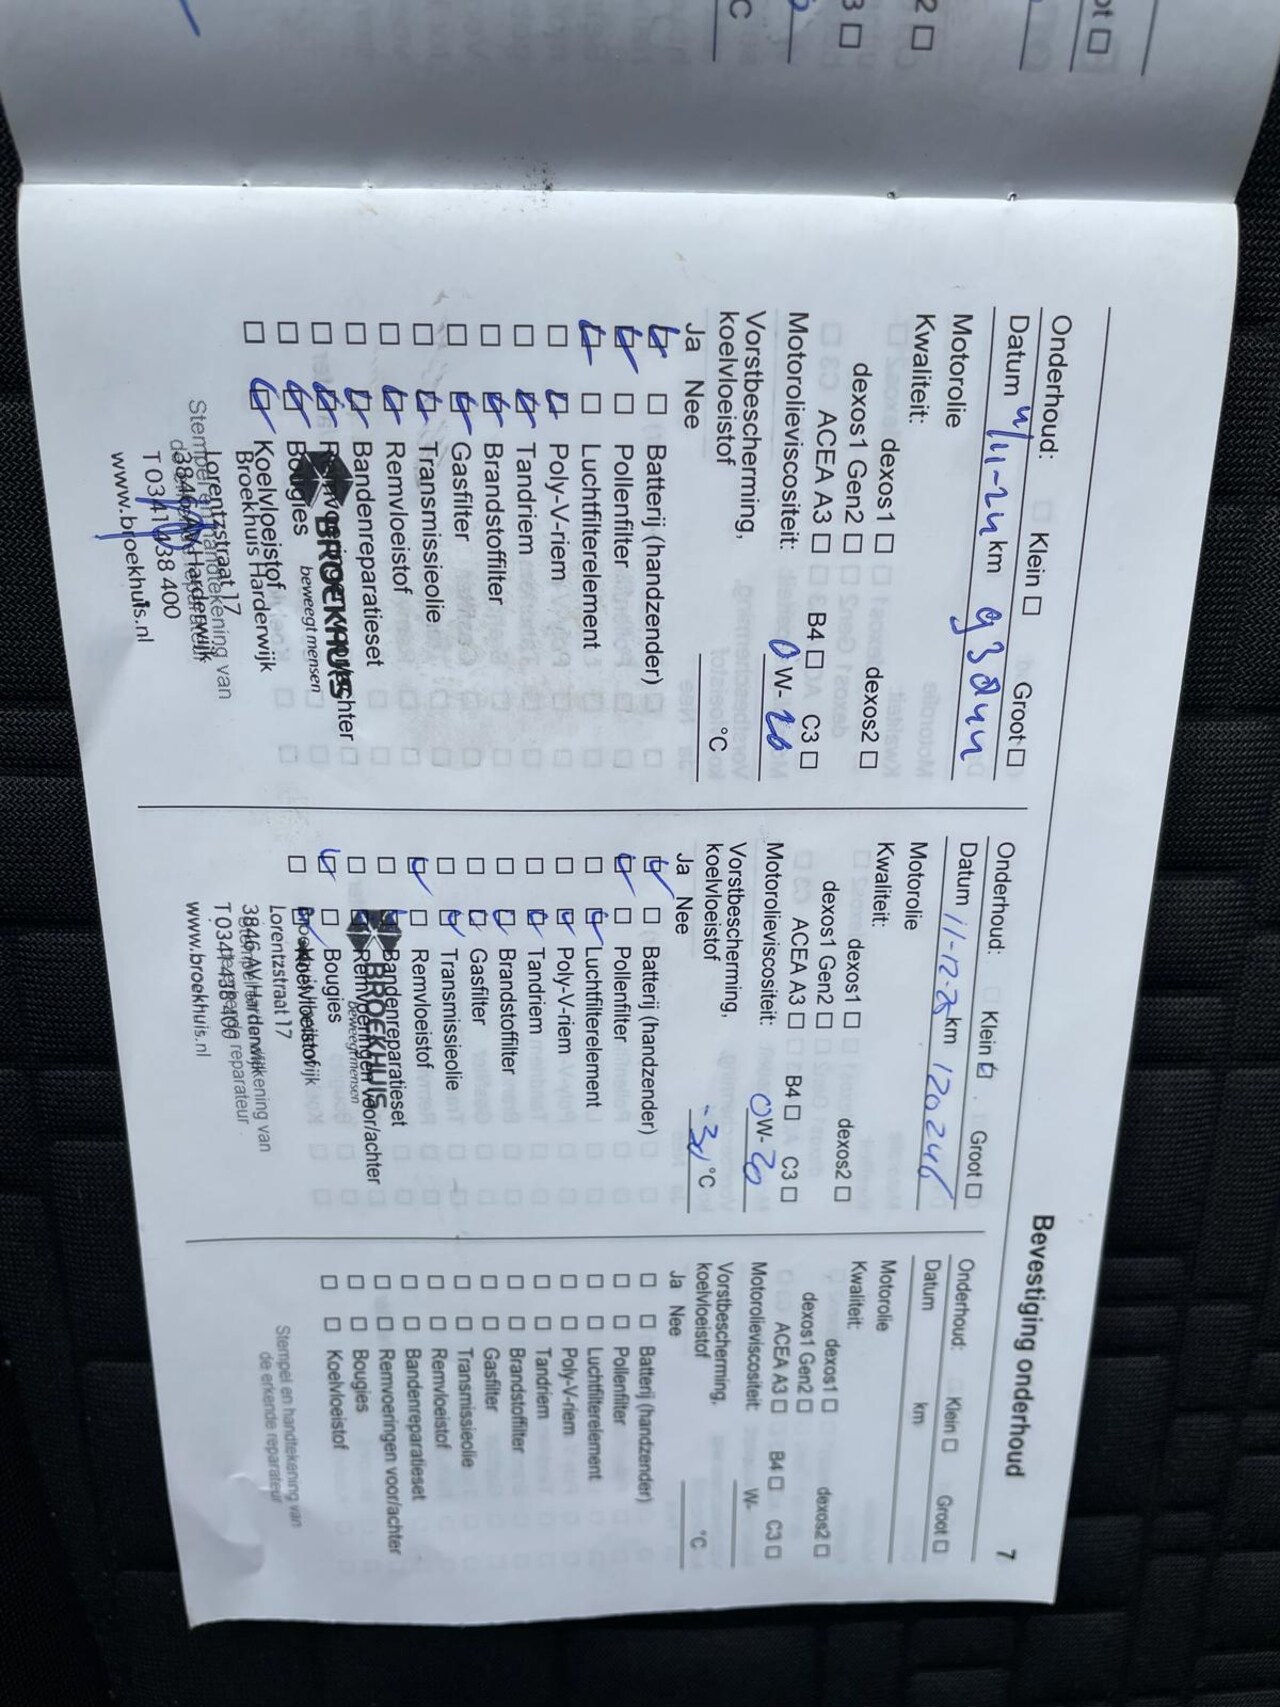 Bevestiging onderhoud 7
Onderhoud: Klein Groot
Datum 11-24 km
Motorolie
Kwaliteit:
dexos1 dexos2
dexos1 Gen2
ACEA A3 B4 C3
Motorolieviscositeit: 0 W-20
Vorstbescherming,
koelvloeistof °C
Ja Nee
Batterij (handzender)
Pollenfilter
Luchtfilterelement
Poly-V-riem
Tandriem
Brandstoffilter
Gasfilter
Transmissieolie
Remvloeistof
Bandenreparatieset
Remvoeringen voor/achter
Bougies
Koelvloeistof
BROEKHUIS
beweegt mensen
Broekhuis Harderwijk
Lorentzstraat 17
3846 AV Harderwijk
T 0341 438 400
www.broekhuis.nl
Stempel en handtekening van
de erkende reparateur
Onderhoud: Klein Groot
Datum 11-12-25 km 120246
Motorolie
Kwaliteit:
dexos1 dexos2
dexos1 Gen2
ACEA A3 B4 C3
Motorolieviscositeit: 0W-20
Vorstbescherming,
koelvloeistof °C
Ja Nee
Batterij (handzender)
Pollenfilter
Luchtfilterelement
Poly-V-riem
Tandriem
Brandstoffilter
Gasfilter
Transmissieolie
Remvloeistof
Bandenreparatieset
Remvoeringen voor/achter
Bougies
Koelvloeistof
BROEKHUIS
beweegt mensen
Broekhuis Harderwijk
Lorentzstraat 17
3846 AV Harderwijk
T 0341 438 400
www.broekhuis.nl
Stempel en handtekening van
de erkende reparateur
Onderhoud: Klein Groot
Datum km
Motorolie
Kwaliteit:
dexos1 dexos2
dexos1 Gen2
ACEA A3 B4 C3
Motorolieviscositeit: W-
Vorstbescherming,
koelvloeistof °C
Ja Nee
Batterij (handzender)
Pollenfilter
Luchtfilterelement
Poly-V-riem
Tandriem
Brandstoffilter
Gasfilter
Transmissieolie
Remvloeistof
Bandenreparatieset
Remvoeringen voor/achter
Bougies
Koelvloeistof
Stempel en handtekening van
de erkende reparateur